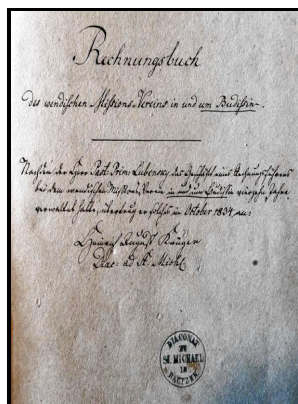 Rechnungsbuch
des wendischen Missions-Vereins in und um Budissin.
Nachdem der Herr Past. Prim. Lubensky das Geschäft eines Rechnungsführers
bei dem wendischen Missions-Verein in und um Budissin vierzehn Jahre
verwaltet hatte, übertrug er solches im October 1834 an:
Heinrich August Krüger
Diac. ad St. Mich.
DIACONAT
ZU
St. MICHAEL
IN
BAUTZEN